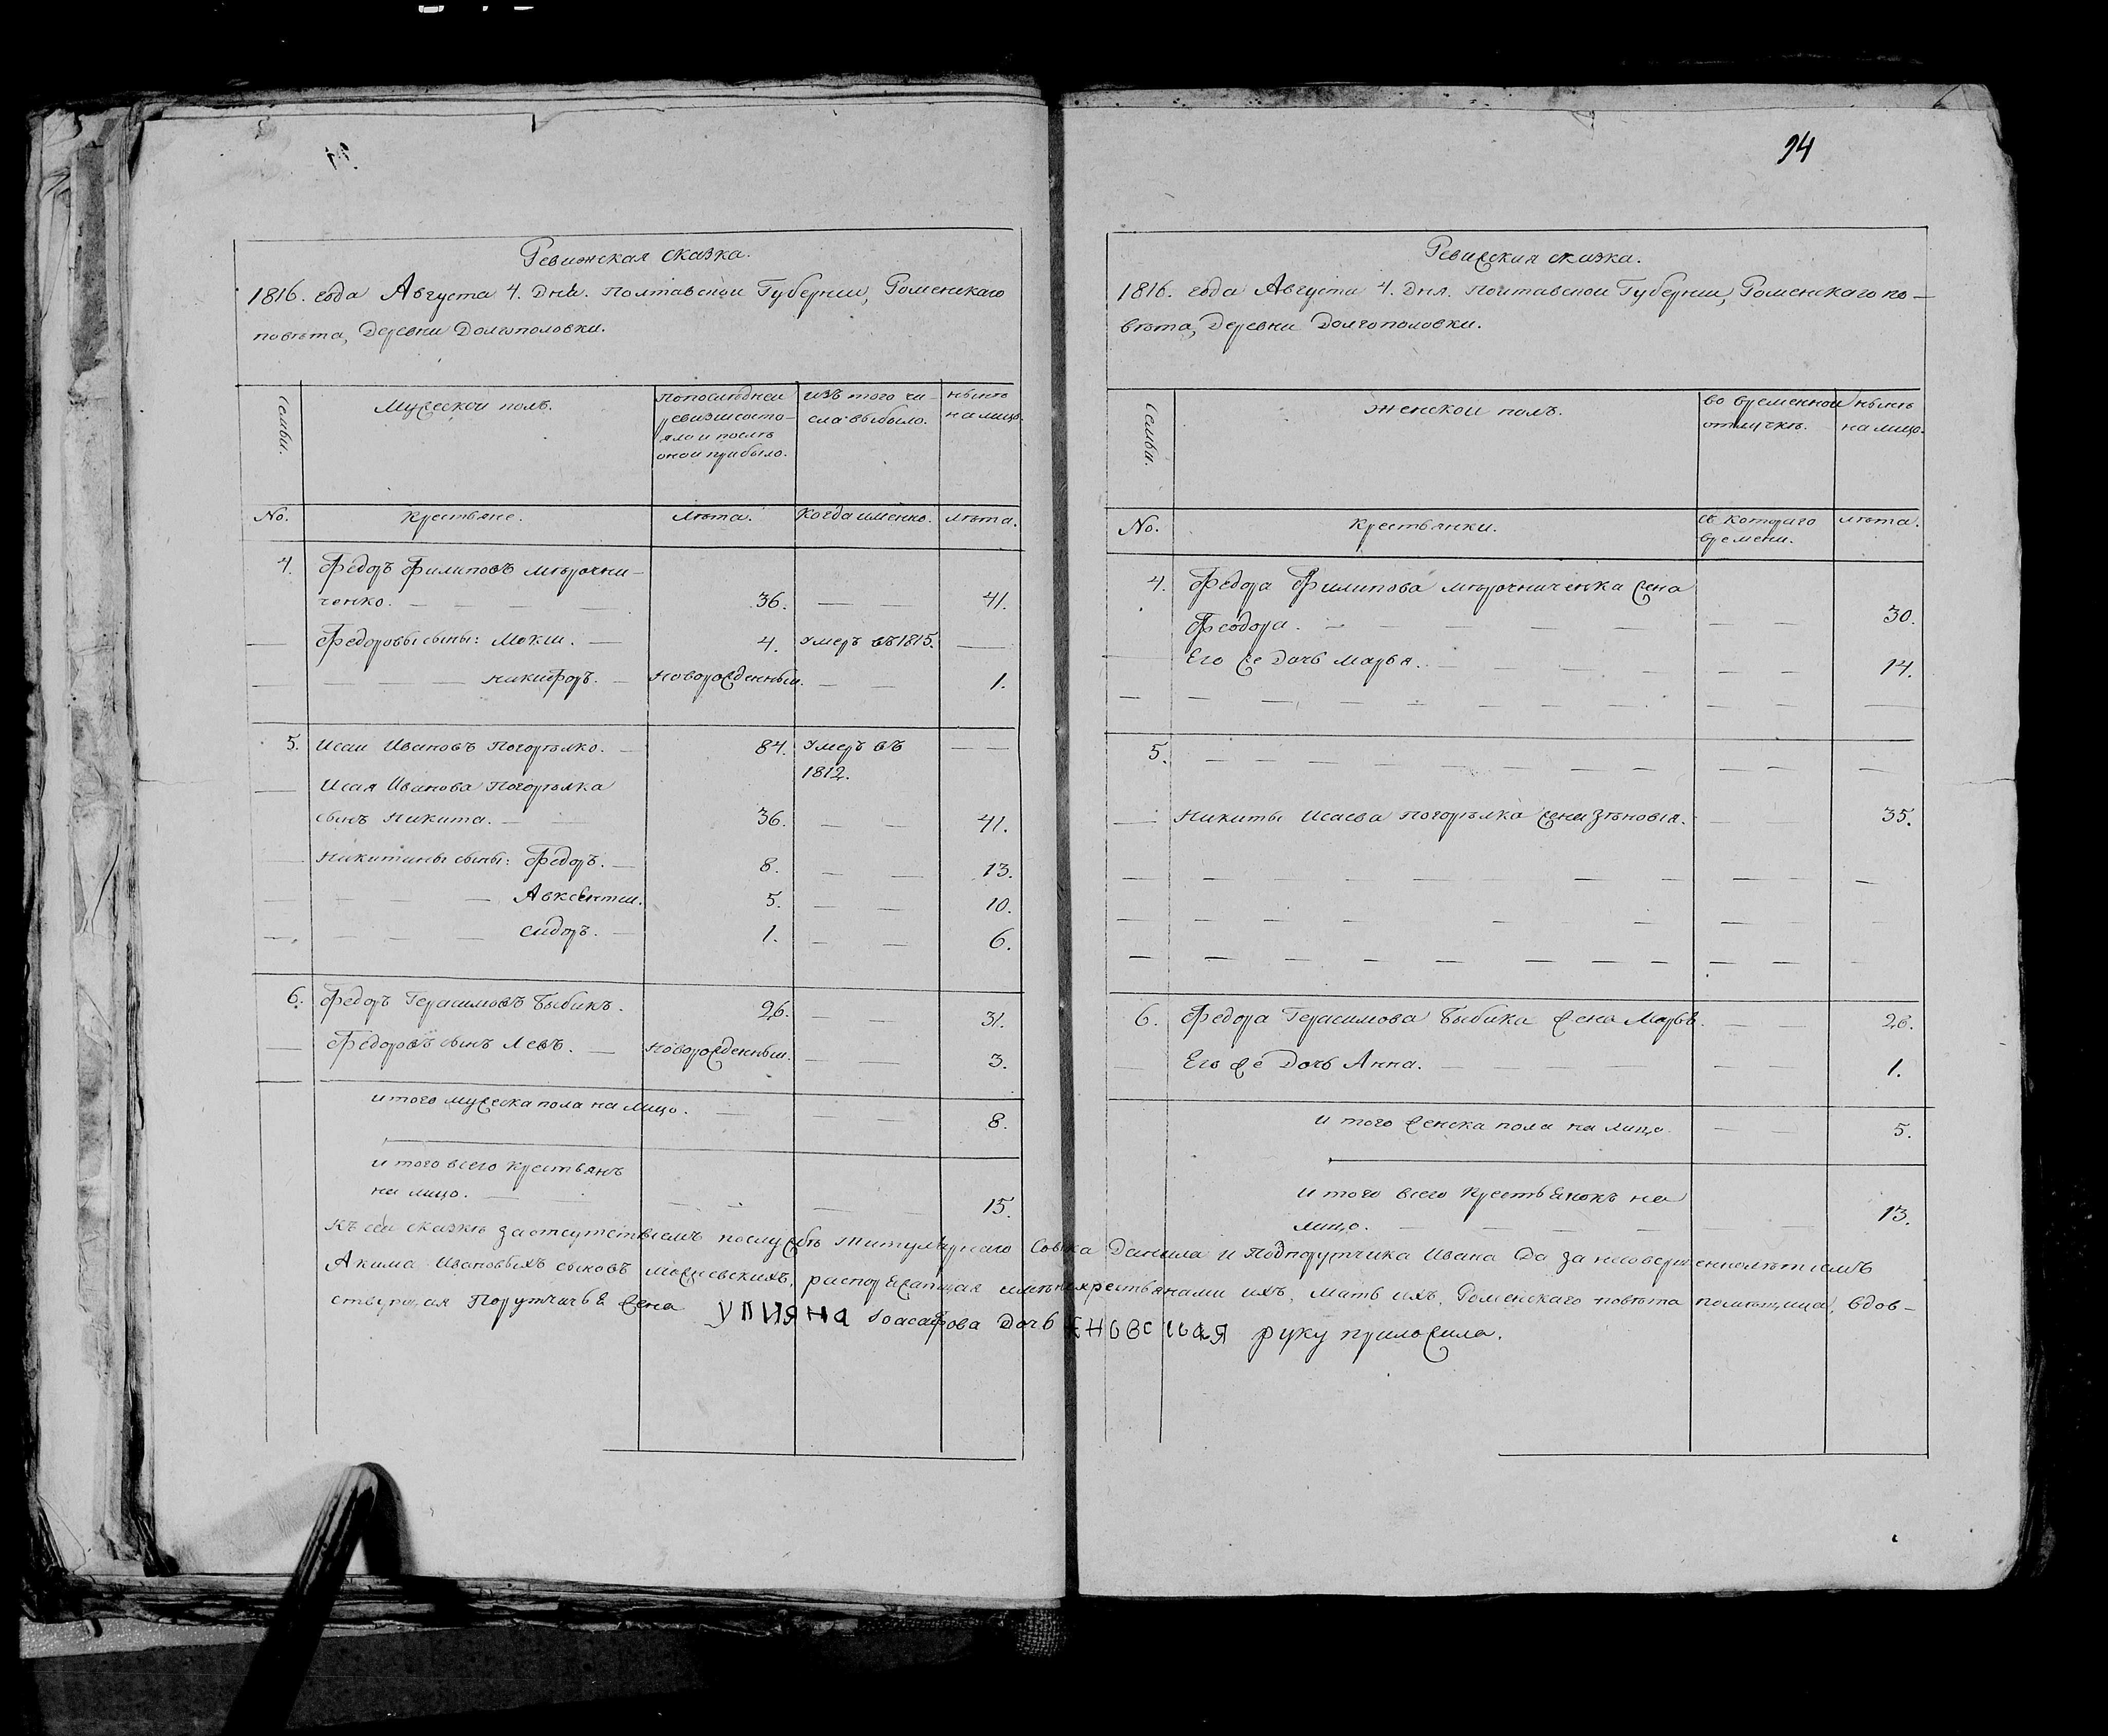 94
Ревижская сказка.
1816. года Августа 4. дня. Полтавской Губернии, Роменскаго
повѣта, Деревни Долгополовки.
Семьи.
Мужеской полъ.
По последней
ревизии состо-
яло и послѣ
оной прибыло.
изъ того чи-
сла выбыло.
нынѣ
на лицо.
No.
Крестьяне.
Лѣта.
Когда именно.
лѣта.
4. Федоръ Филиповъ Мѣрочни-
ченко. 36. 41.
Федоровы сыны: Мокии. 4. умеръ въ 1815.
Никифоръ. Новорожденныи. 1.
5. Исаи Ивановъ Погорѣлко. 84. умеръ въ
1812.
Исая Иванова Погорѣлка
сынъ Никита. 36. 41.
Никитины сыны: Федоръ. 8. 13.
Авксентии. 5. 10.
Сидоръ. 1. 6.
6. Федоръ Герасимовъ Быбикъ. 26. 31.
Федоровъ сынъ Левъ. Новорожденныи. 3.
итого мужеска пола на лицо. 8.
итого всего крестьянъ
на лицо. 15.
Ревижская сказка.
1816. года Августа 4. дня. Полтавской Губернии, Роменскаго по-
вѣта, Деревни Долгополовки.
Семьи.
Женской полъ.
во временной
отлучкѣ.
нынѣ
на лицо.
No.
Крестьянки.
съ котораго
времени.
лѣта.
4. Федора Филипова Мѣрочниченка жена
Феодора. 30.
Его же дочь Марья. 14.
5.
Никиты Исаева Погорѣлка жена Зѣновія. 35.
6. Федора Герасимова Быбика жена Марья. 26.
Его же дочь Анна. 1.
итого женска пола на лицо. 5.
итого всего крестьянокъ на
лицо. 13.
Къ сей сказкѣ за отсутствіемъ по службѣ титулярнаго Совѣтника Данила и Подпорутчика Ивана да за несовершеннолѣтіемъ
Акима Ивановыхъ сыновъ распоряжающая имѣніемъ крестьянами ихъ, мать ихъ, Роменскаго повѣта помѣщица, вдов-
ствующая Порутчичья жена Улияна Іоасафова дочь руку приложила.